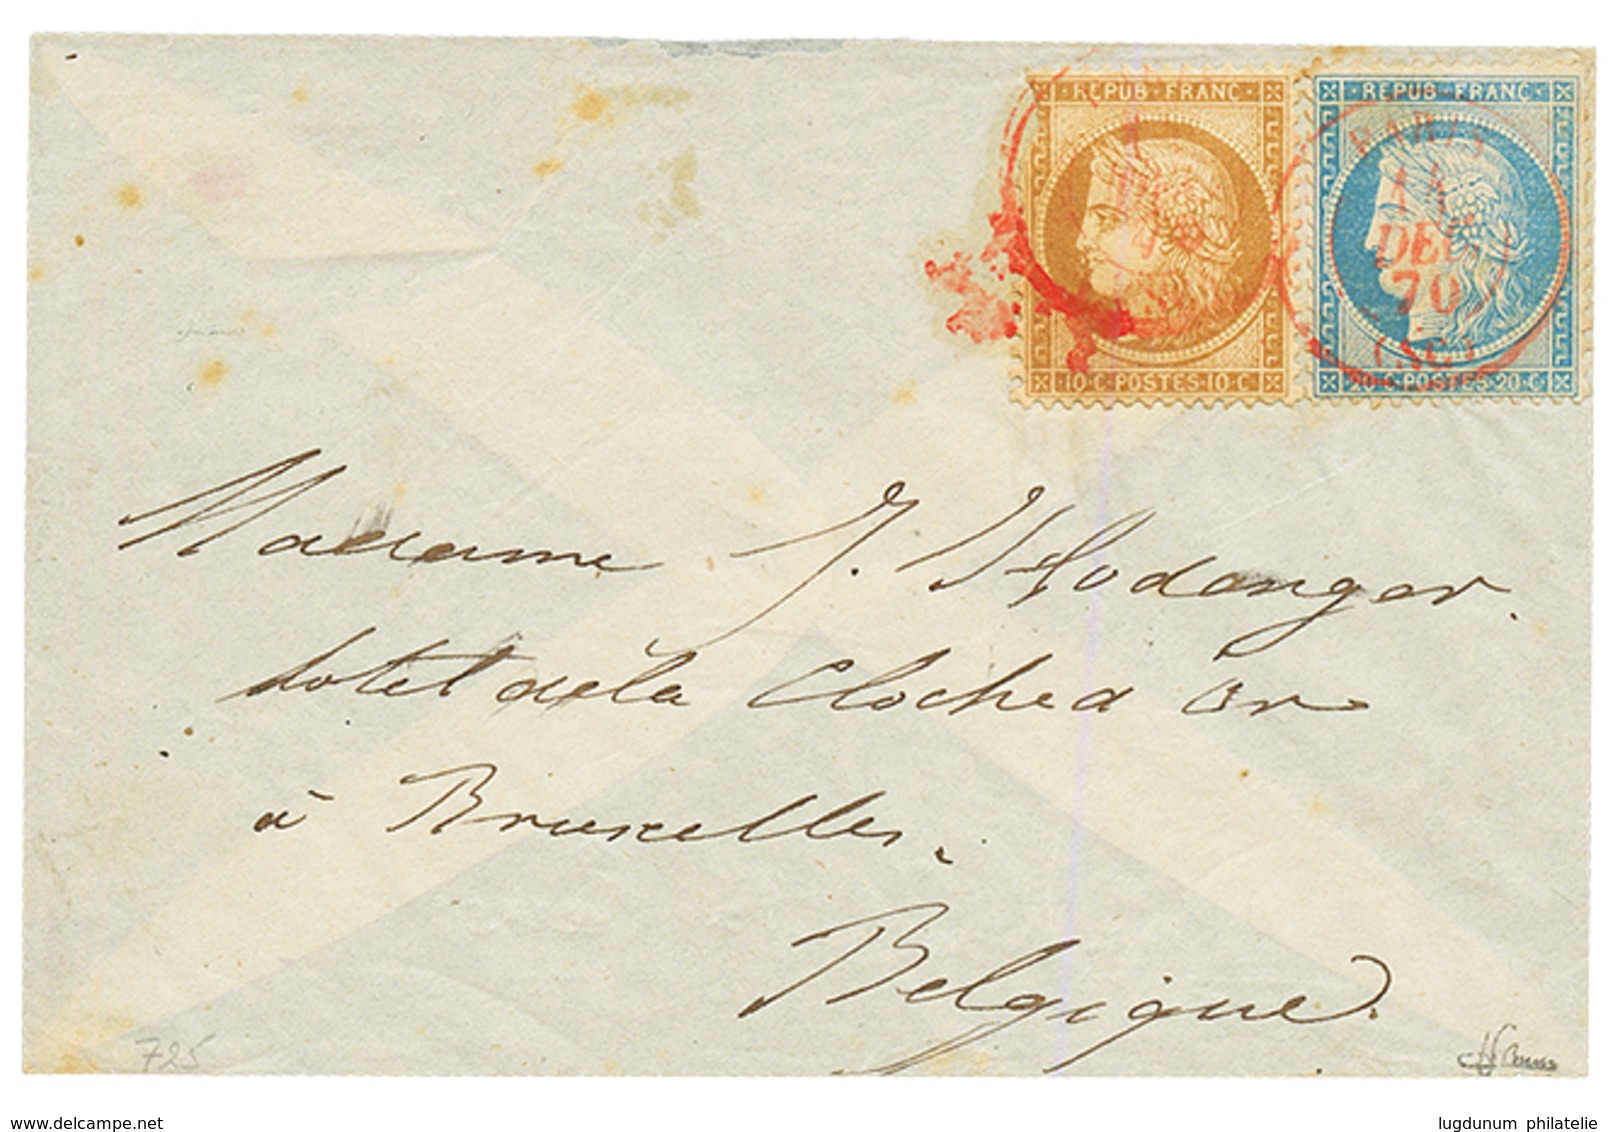 REPUB·FRANC
10·C·POSTES·10·C
REPUB·FRANC
20·C·POSTES·20·C
PARIS
DEC
70
(SC)
Madame J. Hodanger.
hotel de la Cloche d or
à Bruxelles.
Belgique.
725
delcampe.net
lugdunum philatelie